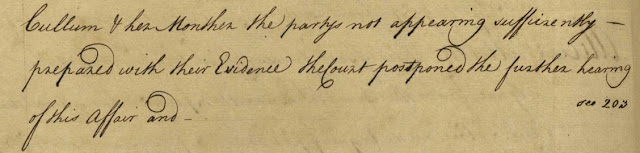 Cullum & her Monther the partys not appearing sufficiently —
prepared with their Evidence the Court postponed the further hearing
of this Affair and —
see 203